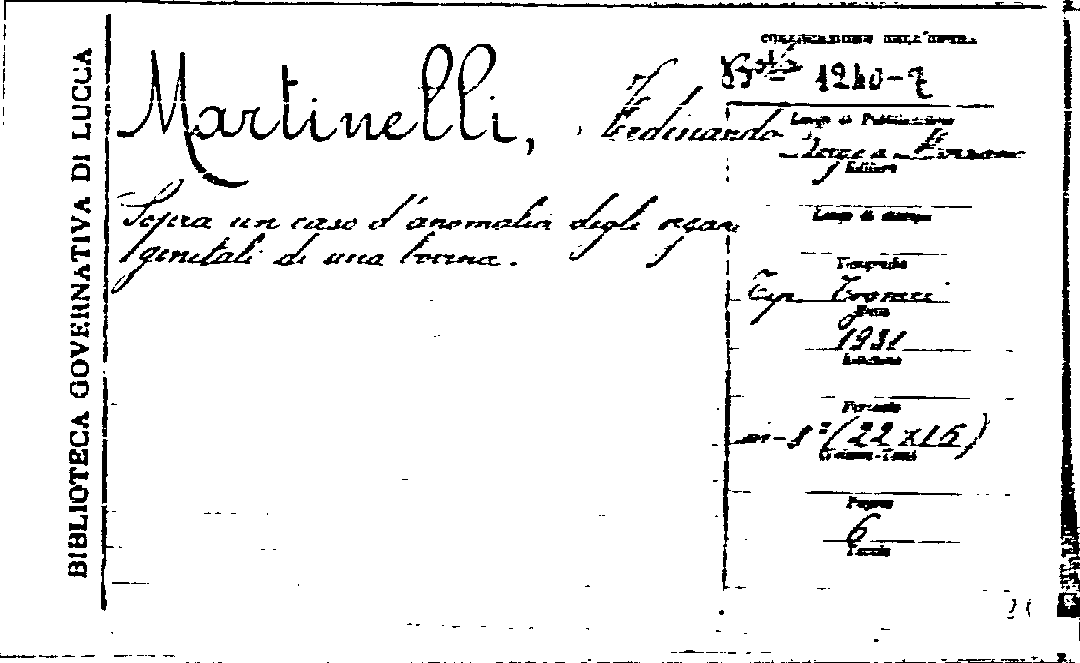 BIBLIOTECA GOVERNATIVA DI LUCCA
Martinelli, Ferdinando
Sopra un caso d'anomalia degli organi
genitali di una bovina.
COLLOCAZIONE DELL'OPERA
1240-7
Luogo di Pubblicazione
Borgo a
Editore
Luogo di stampa
Tipografia
Tip. Tronci
Data
1931
Edizione
Formato
in-8º (22x16)
Volume-Tomi
Pagine
6
Tavole